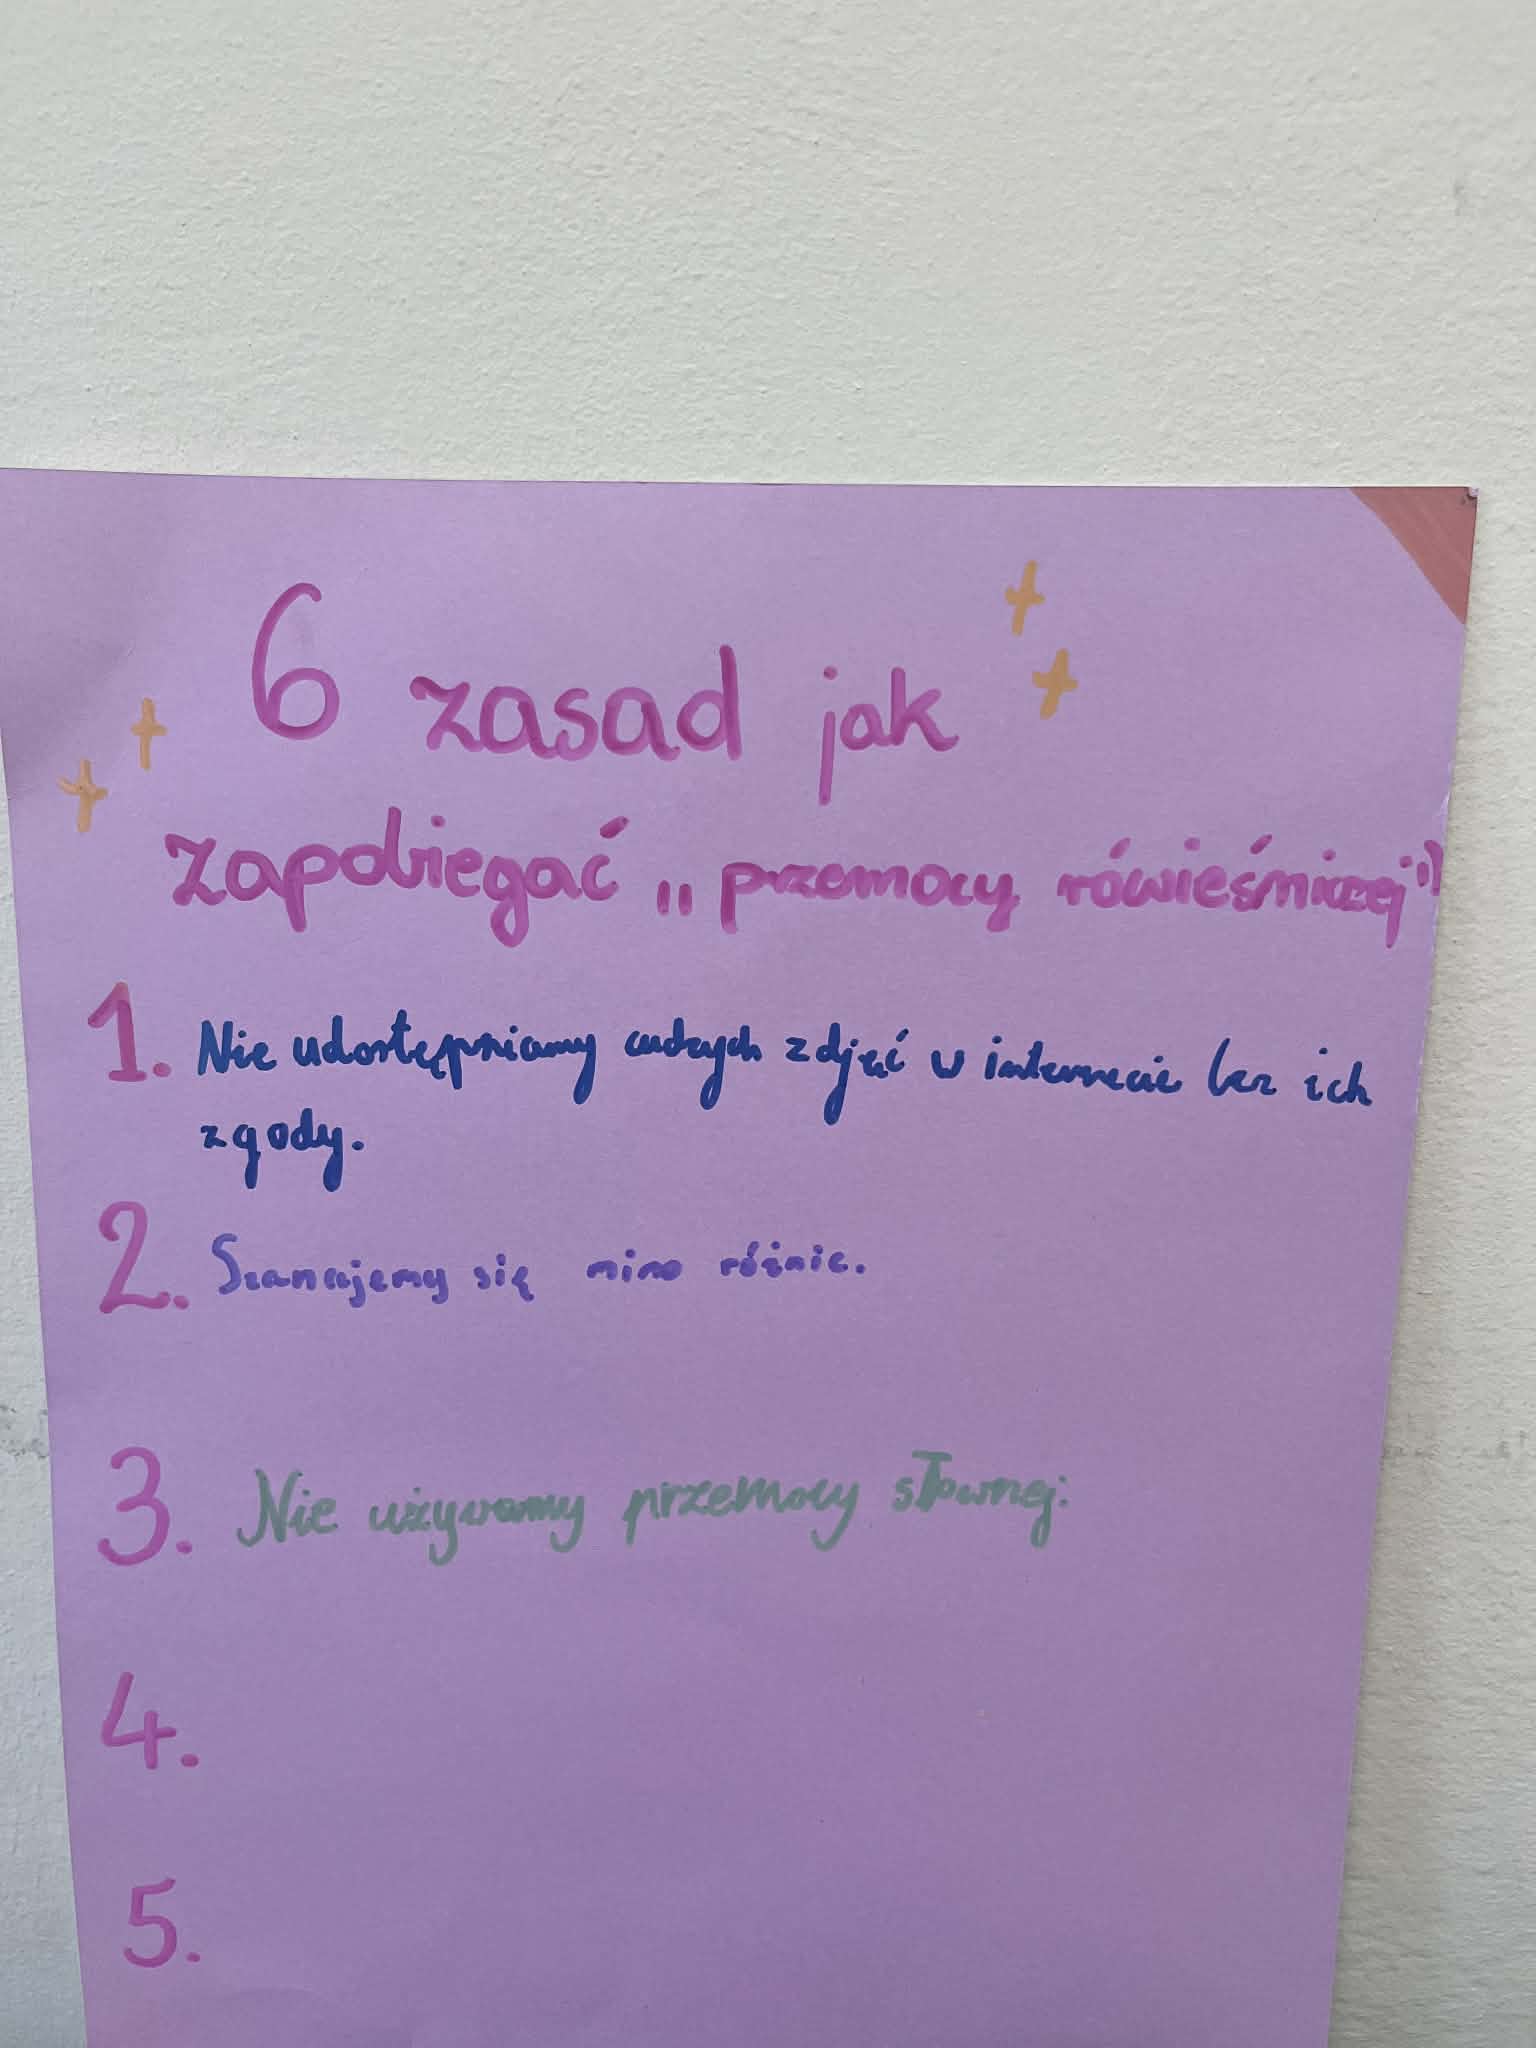 6 zasad jak
zapobiegać „przemocy rówieśniczej"
1. Nie udostępniamy cudzych zdjęć w internecie bez ich
zgody.
2. Szanujemy się mimo różnic.
3. Nie używamy przemocy słownej.
4.
5.